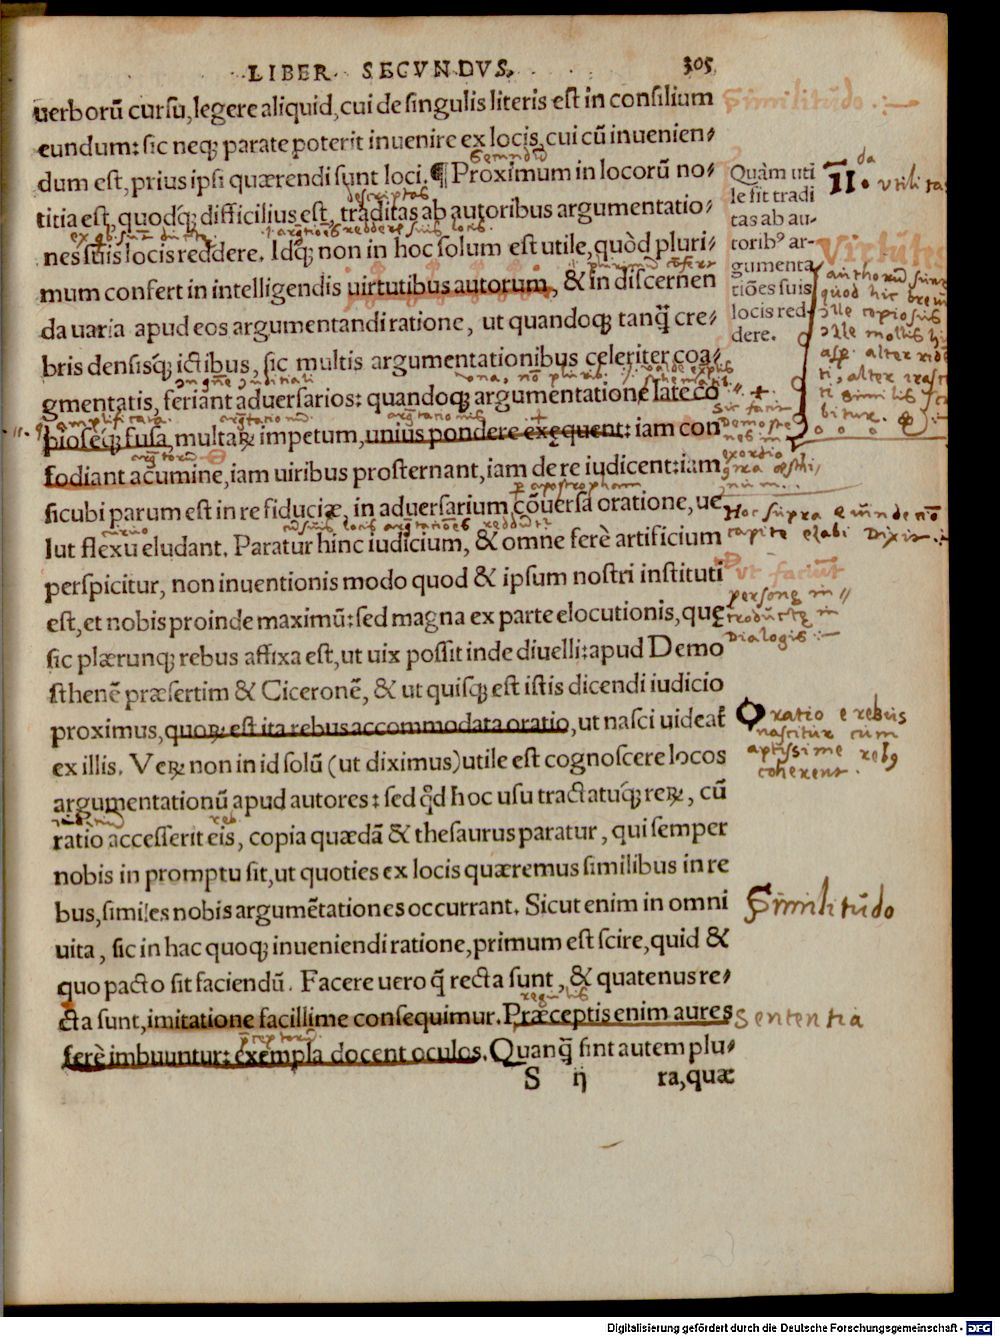 LIBER SECVNDVS.
305
uerborū cursu, legere aliquid, cui de singulis literis est in consilium
eundum: sic neqꝫ parate poterit inuenire ex locis, cui cū inuenien-
dum est, prius ipsi quærendi sunt loci. ¶ Proximum in locorū no-
titia est, quodqꝫ difficilius est, traditas ab autoribus argumentatio-
nes suis locis reddere. Idqꝫ non in hoc solum est utile, quòd pluri-
mum confert in intelligendis uirtutibus autorum, & in discernen
da uaria apud eos argumentandi ratione, ut quandoqꝫ tanq̃ cre-
bris densisqꝫ ictibus, sic multis argumentationibus celeriter coa-
gmentatis, feriant aduersarios: quandoqꝫ argumentatione late co
pioseqꝫ fusa, multaꝝ impetum, unius pondere exęquent: iam con
fodiant acumine, iam uiribus prosternant, iam de re iudicent: iam
sicubi parum est in re fiduciæ, in aduersarium cōuersa oratione, ue
lut flexu eludant. Paratur hinc iudicium, & omne ferè artificium
perspicitur, non inuentionis modo quod & ipsum nostri instituti
est, et nobis proinde maximū: sed magna ex parte elocutionis, quę
sic plærunqꝫ rebus affixa est, ut uix possit inde diuelli: apud Demo
sthenē præsertim & Ciceronē, & ut quisqꝫ est istis dicendi iudicio
proximus, quoꝝ est ita rebus accommodata oratio, ut nasci uideat̃
ex illis. Veꝝ non in id solū (ut diximus) utile est cognoscere locos
argumentationū apud autores: sed qd̃ hoc usu tractatuqꝫ reꝝ, cū
ratio accesserit eis, copia quædā & thesaurus paratur, qui semper
nobis in promptu sit, ut quoties ex locis quæremus similibus in re
bus, similes nobis argumētationes occurrant. Sicut enim in omni
uita, sic in hac quoqꝫ inueniendi ratione, primum est scire, quid &
quo pacto sit faciendū. Facere uero q̃ recta sunt, & quatenus re-
cta sunt, imitatione facillime consequimur. Præceptis enim aures
ferè imbuuntur: exempla docent oculos. Quanq̃ sint autem plu-
S ij
ra, quæ
Similitudo
Quàm uti
le sit tradi
tas ab au-
toribꝰ ar-
gumenta
tiões suis
locis red-
dere.
II. utilitas
Virtutes
Hoc supra
capite elabi dixit.
ut faciūt
personę in
troductę in
Dialogis
Oratio e rebus
nascitur cum
aptissime rebꝰ
coherent.
Similitudo
Sententia
Digitalisierung gefördert durch die Deutsche Forschungsgemeinschaft - DFG